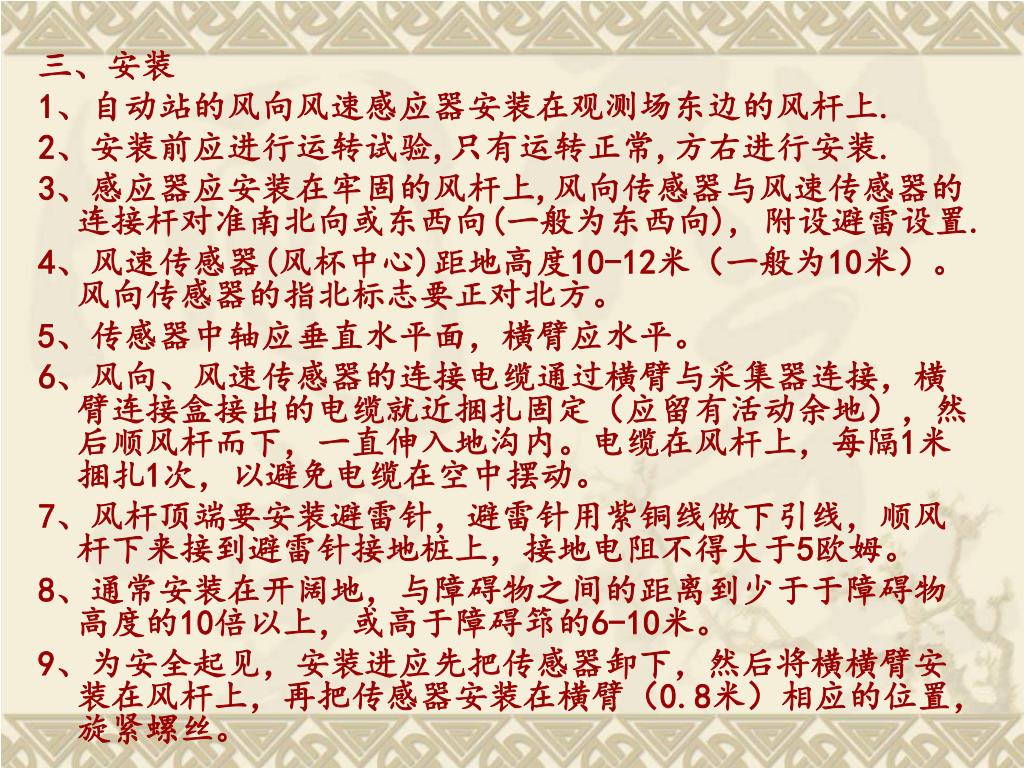 三、安装
1、自动站的风向风速感应器安装在观测场东边的风杆上.
2、安装前应进行运转试验,只有运转正常,方右进行安装.
3、感应器应安装在牢固的风杆上,风向传感器与风速传感器的
连接杆对准南北向或东西向(一般为东西向)，附设避雷设置.
4、风速传感器(风杯中心)距地高度10-12米（一般为10米）。
风向传感器的指北标志要正对北方。
5、传感器中轴应垂直水平面，横臂应水平。
6、风向、风速传感器的连接电缆通过横臂与采集器连接，横
臂连接盒接出的电缆就近捆扎固定（应留有活动余地），然
后顺风杆而下，一直伸入地沟内。电缆在风杆上，每隔1米
捆扎1次，以避免电缆在空中摆动。
7、风杆顶端要安装避雷针，避雷针用紫铜线做下引线，顺风
杆下来接到避雷针接地桩上，接地电阻不得大于5欧姆。
8、通常安装在开阔地，与障碍物之间的距离到少于于障碍物
高度的10倍以上，或高于障碍筇的6-10米。
9、为安全起见，安装进应先把传感器卸下，然后将横横臂安
装在风杆上，再把传感器安装在横臂（0.8米）相应的位置，
旋紧螺丝。